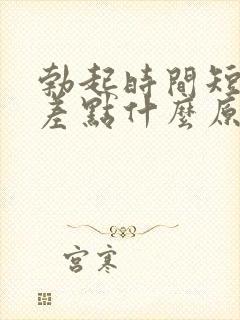 勃起時間短
差點什麼原
宮寒